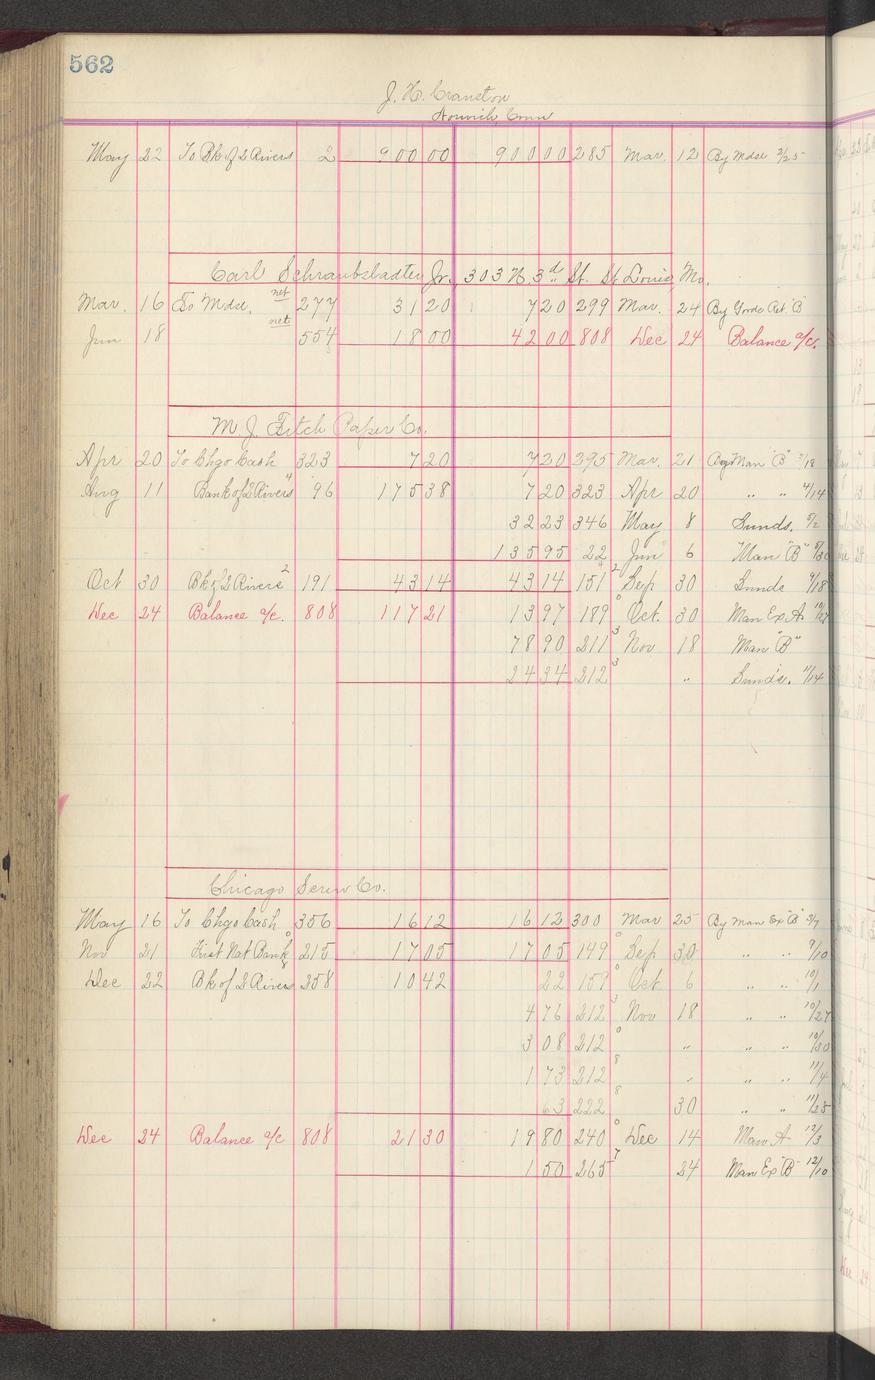 562
J. H. Cranston
Norwich, Conn
May 22 To Bk of 2 Rivers 2 900 00 900 00 285 Mar. 12 By Mdse 2/25
Carl Schraubstadter Jr., 303 N. 3d St. St Louis, Mo.
Mar. 16 To Mdse. net 277 31 20 7 20 299 Mar. 24 By Goods Ret. "B"
Jun 18 net 554 18 00 42 00 808 Dec 24 Balance a/c.
M. J. Fitch Paper Co.
Apr 20 To Chgo Cash 323 7 20 7 20 295 Mar. 21 By Man "B" 3/18
Aug 11 Bank of 2 Rivers 4 96 175 38 7 20 323 Apr 20 " " 4/14
32 23 346 May 8 Sunds. 5/2
135 95 22 Jun 6 Man "B" 5/30
Oct 30 Bk of 2 Rivers 2 191 43 14 43 14 151 2 Sep 30 Sunds 9/18
Dec 24 Balance a/c. 808 117 21 13 97 189 0 Oct. 30 Man Ex A 10/27
78 90 211 3 Nov 18 Man "B"
24 34 212 3 " Sunds. 11/14
Chicago Screw Co.
May 16 To Chgo Cash 356 16 12 16 12 300 Mar 25 By Man Ex "B" 3/7
Nov 21 First Nat Bank 0 215 17 05 17 05 149 0 Sep 30 " " 9/10
Dec 22 Bk of 2 Rivers 8 258 10 42 22 159 0 Oct 6 " " 10/1
4 76 212 3 Nov 18 " " 10/27
3 08 212 0 " " " 10/30
1 73 212 8 " " " 11/4
63 222 8 30 " " 11/25
Dec 24 Balance a/c 808 21 30 19 80 240 0 Dec 14 Man A 12/3
1 50 265 7 24 Man Ex "B" 12/10